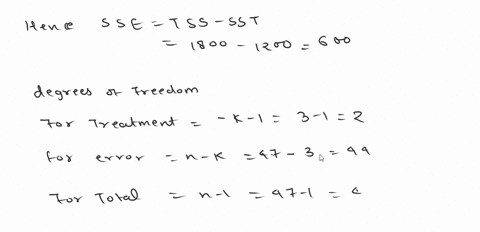 Hence SSE = TSS - SST
= 1800 - 1200 = 600
degrees of Freedom
For Treatment = -k-1 = 3-1 = 2
for error = n-k = 47-3 = 44
For Total = n-1 = 47-1 = 4